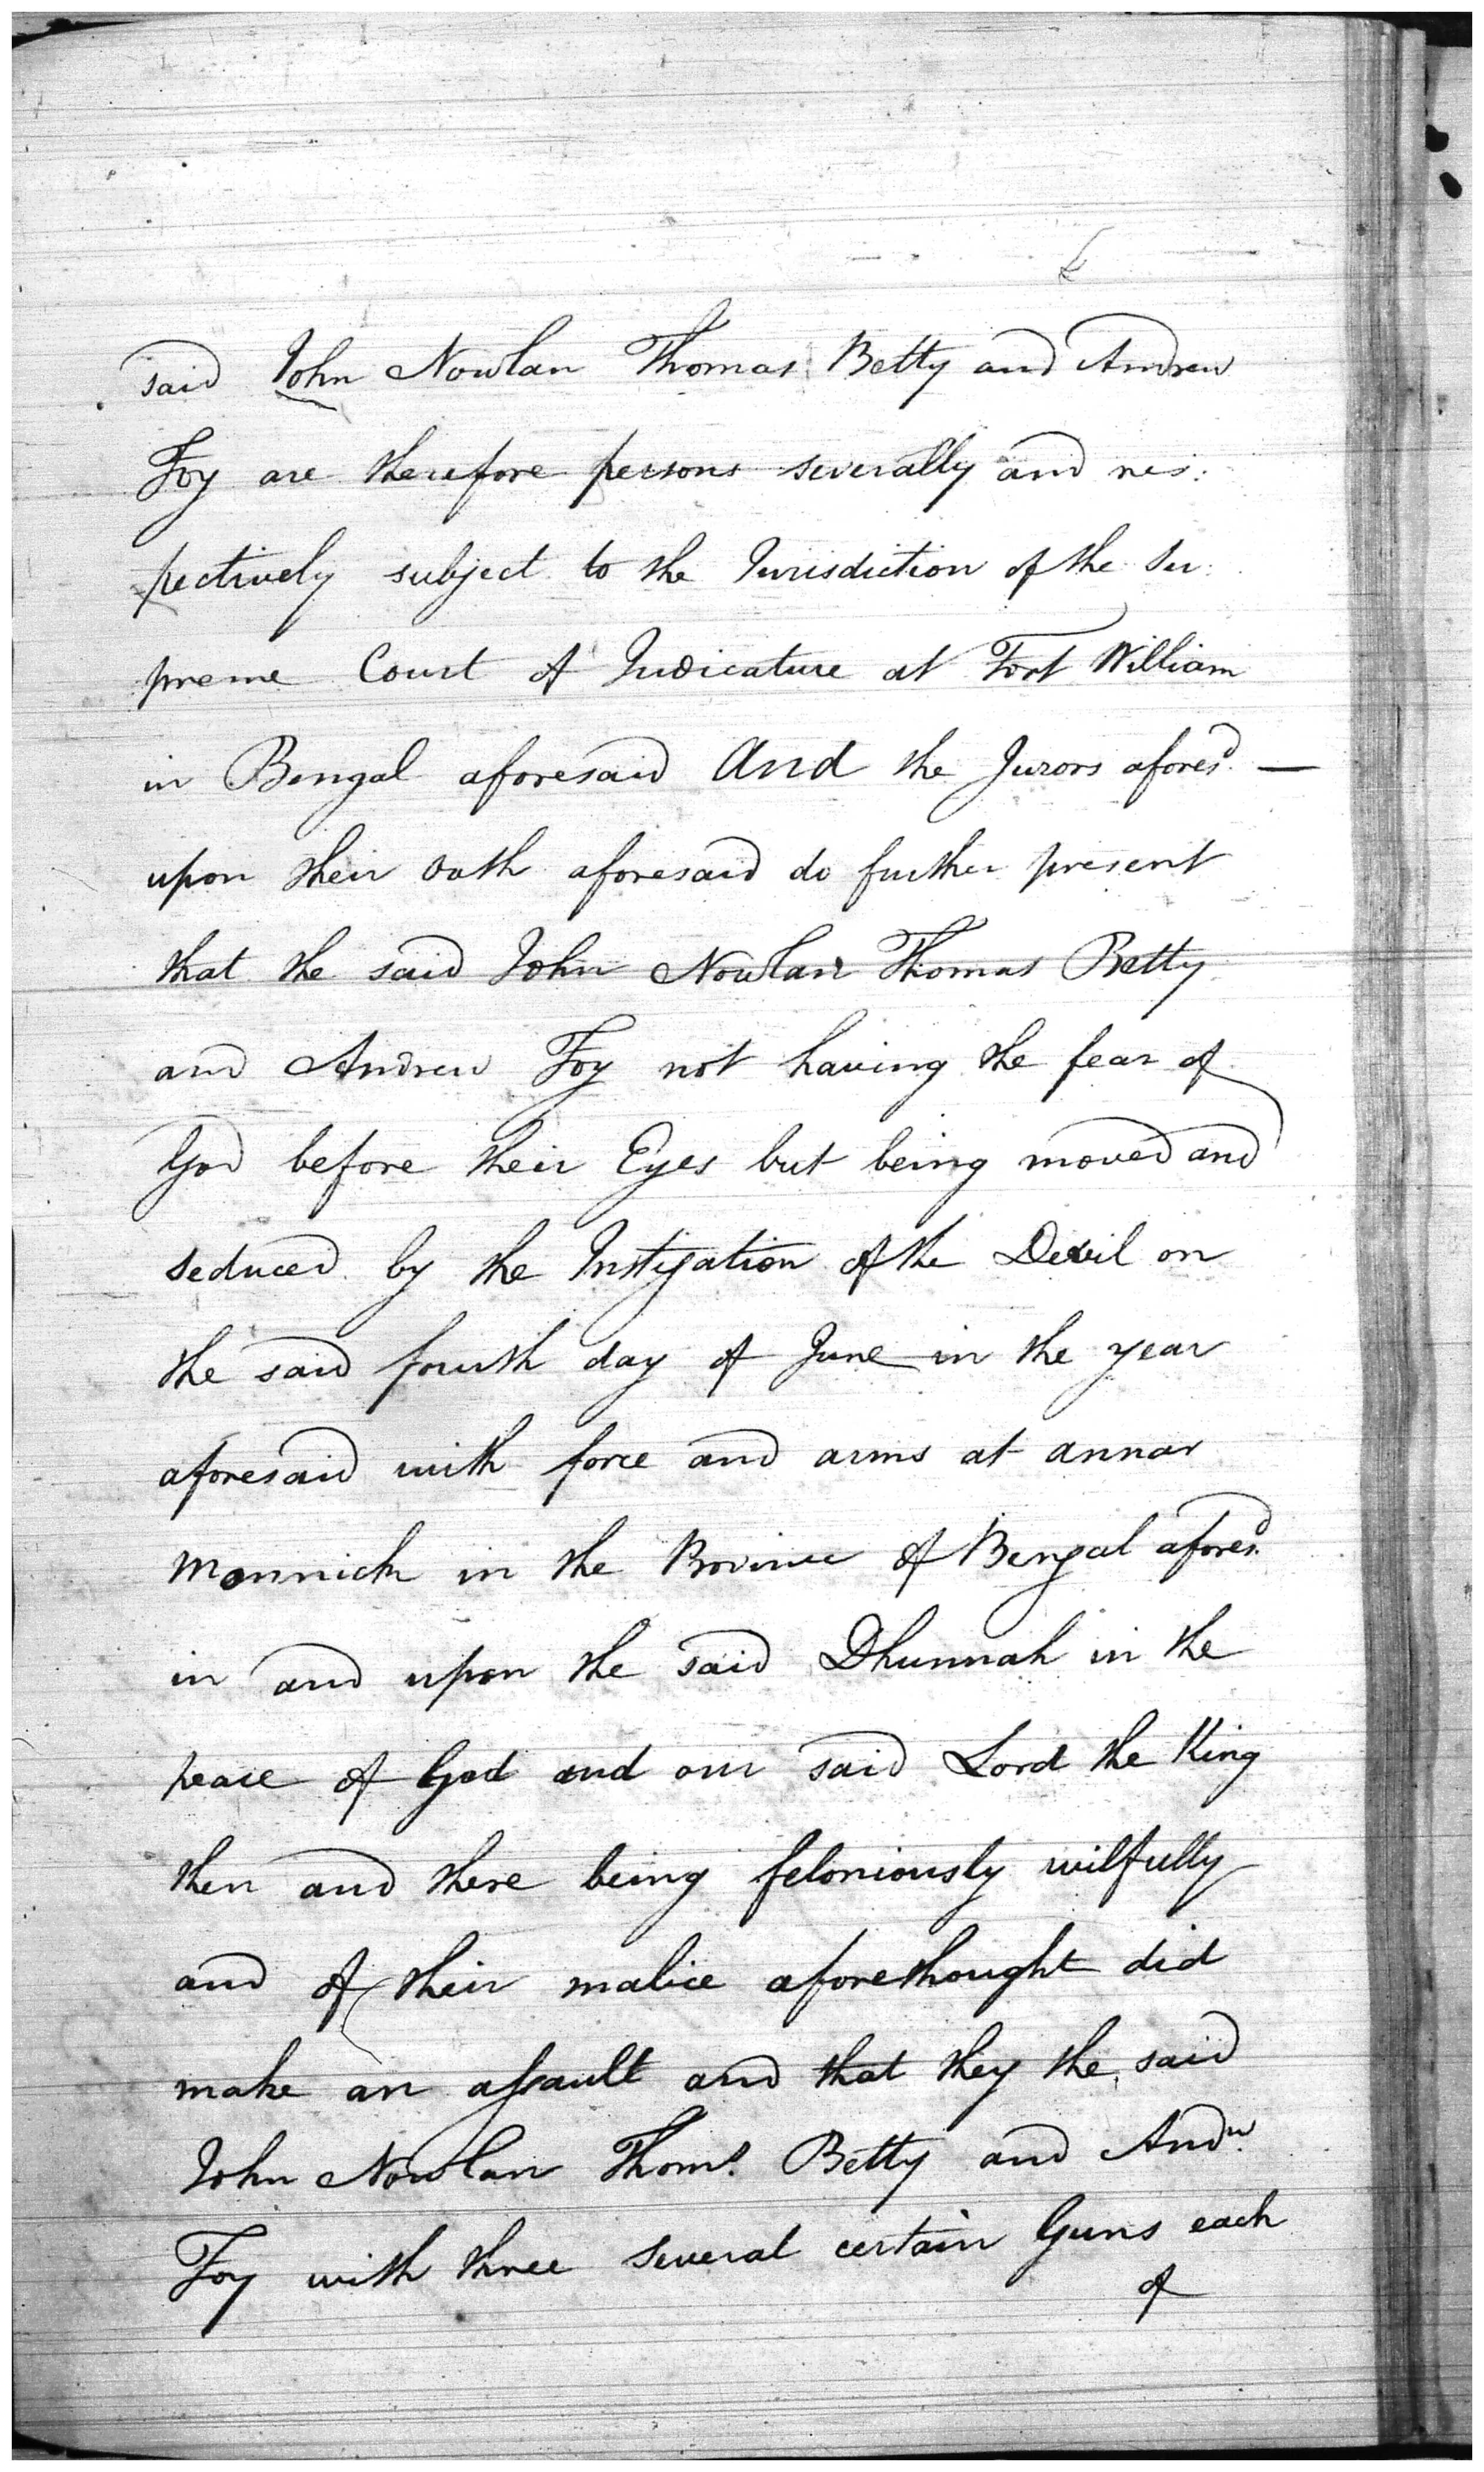 said John Nowlan Thomas Betty and Andrew
Foy are therefore persons severally and res:
pectively subject to the Jurisdiction of the Su:
preme Court of Judicature at Fort William
in Bengal aforesaid And the Jurors afores.d —
upon their Oath aforesaid do further present
that the said John Nowlan Thomas Betty
and Andrew Foy not having the fear of
God before their Eyes but being moved and
seduced by the Instigation of the Devil on
the said fourth day of June in the year
aforesaid with force and arms at annar
Monnick in the Province of Bengal afores.d
in and upon the said Dhunnah in the
peace of God and our said Lord the King
then and there being feloniously wilfully
and of their malice aforethought did
make an assault and that they the said
John Nowlan Thom.s Betty and And.w
Foy with three several certain Guns each
of